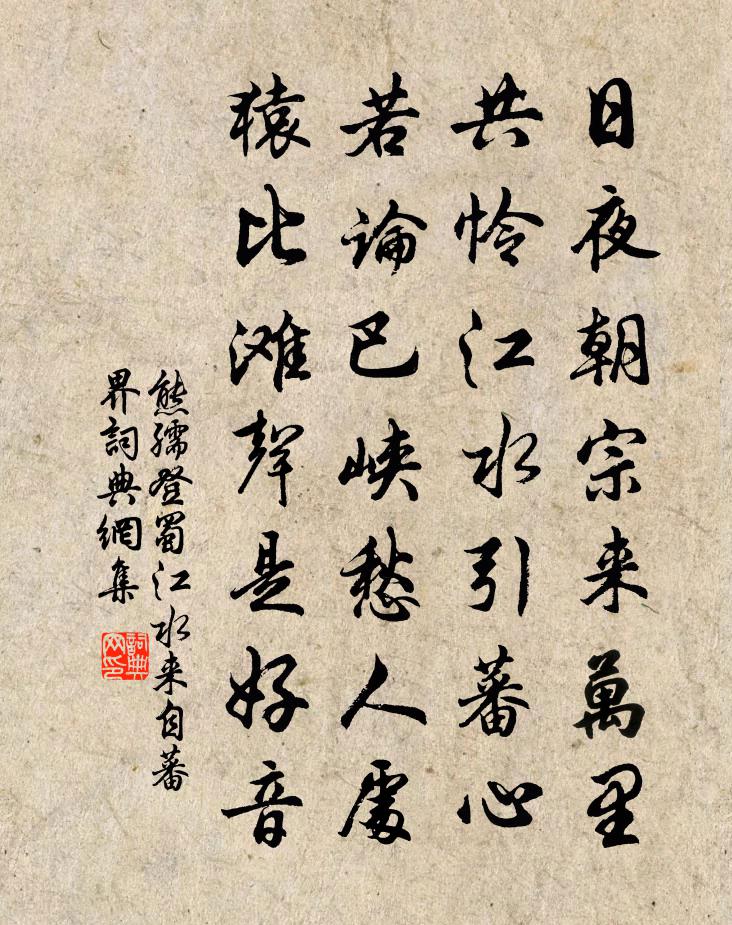 日夜朝宗来萬里
共怜江水引蕃心
若論巴峡愁人處
猿比滩聲是好音
熊孺登蜀江水来自蕃
界詞典網集
詞典
网印